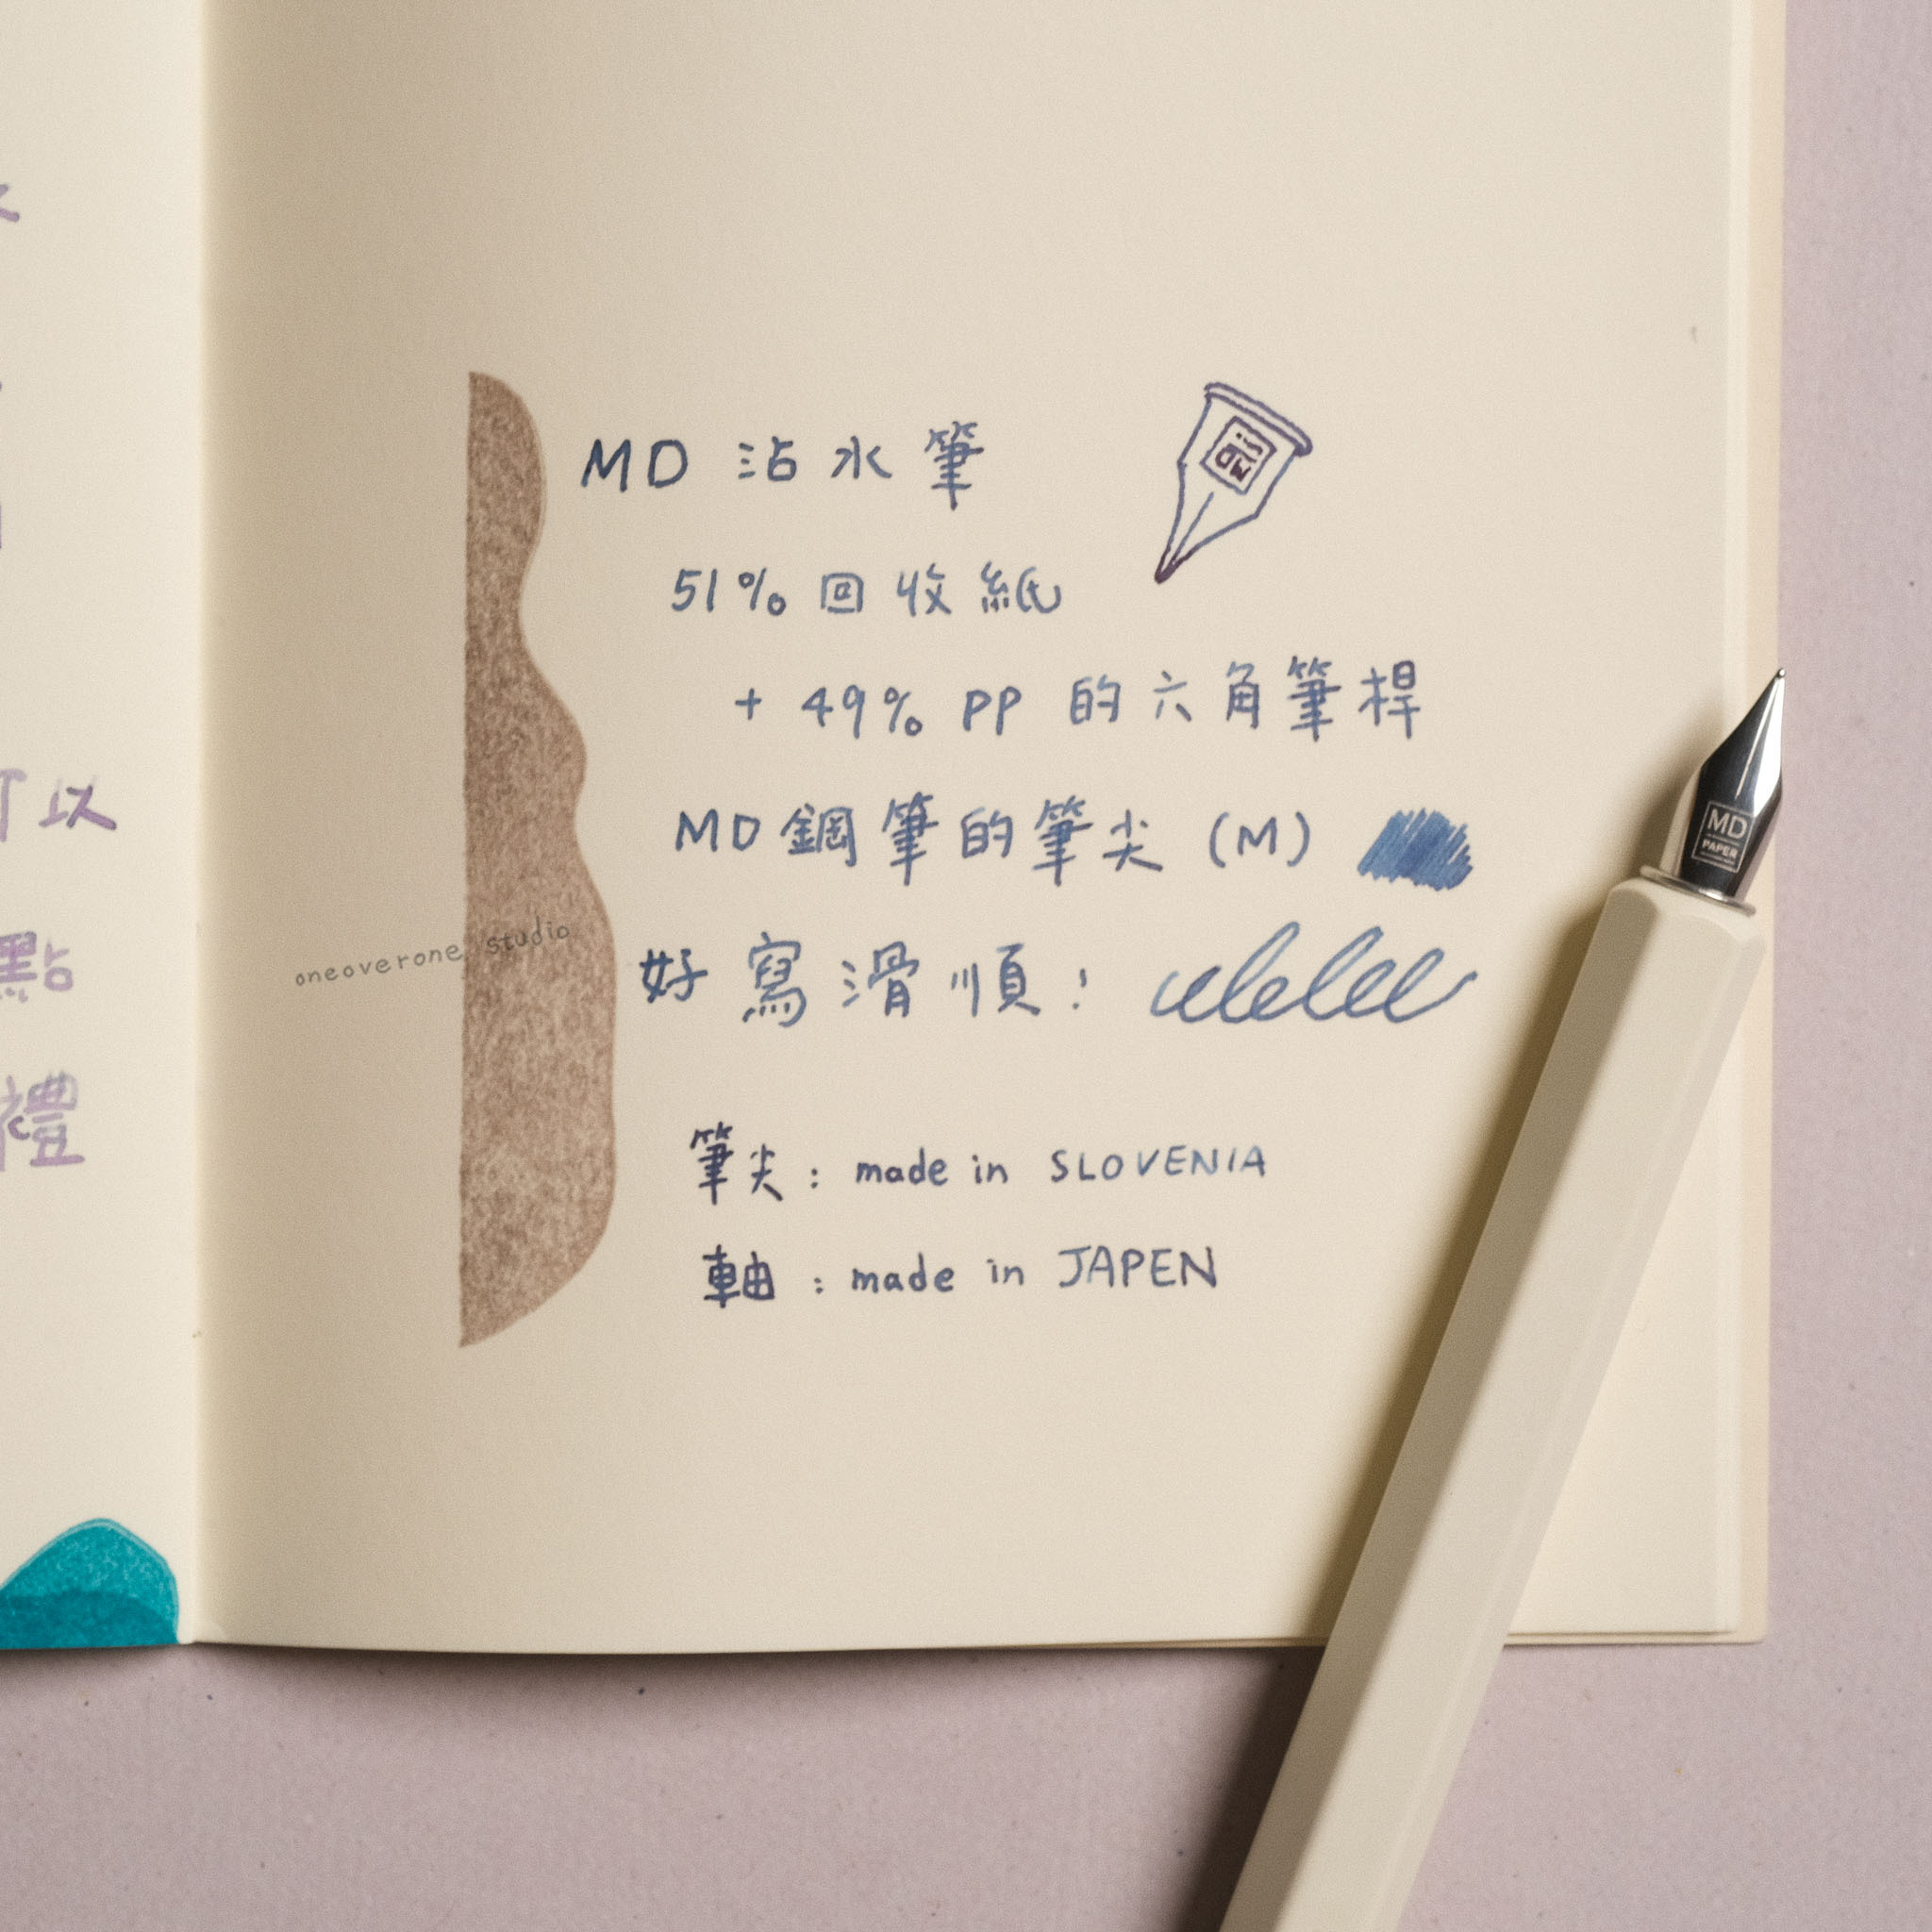 可以
點
禮
MD 沾水筆
51% 回收紙
+ 49% PP 的六角筆桿
MD鋼筆的筆尖 (M)
好寫滑順!
筆尖: made in SLOVENIA
軸: made in JAPEN
oneoverone studio
MD
PAPER